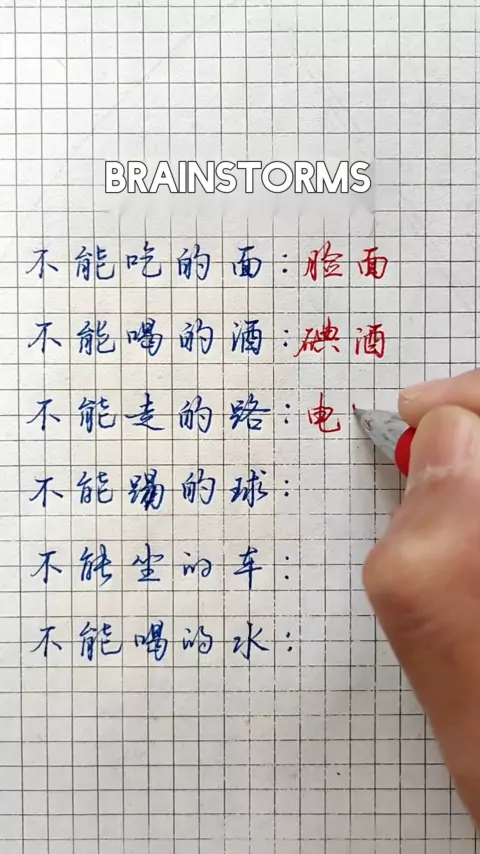 BRAINSTORMS
不能吃的面：脸面
不能喝的酒：碘酒
不能走的路：电
不能踢的球：
不能坐的车：
不能喝的水：